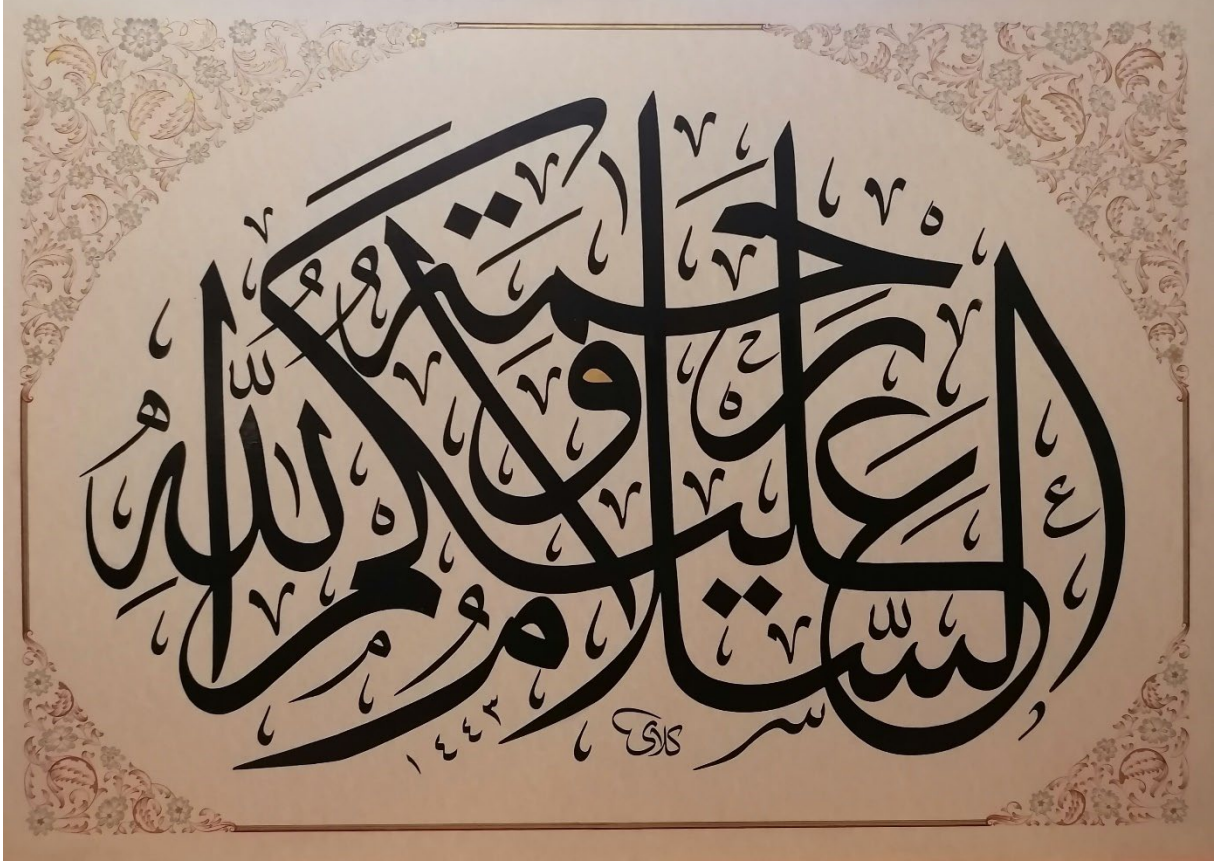 السَّلَامُ عَلَيْكُمْ وَرَحْمَةُ اللّٰهِ
١٤٤٣